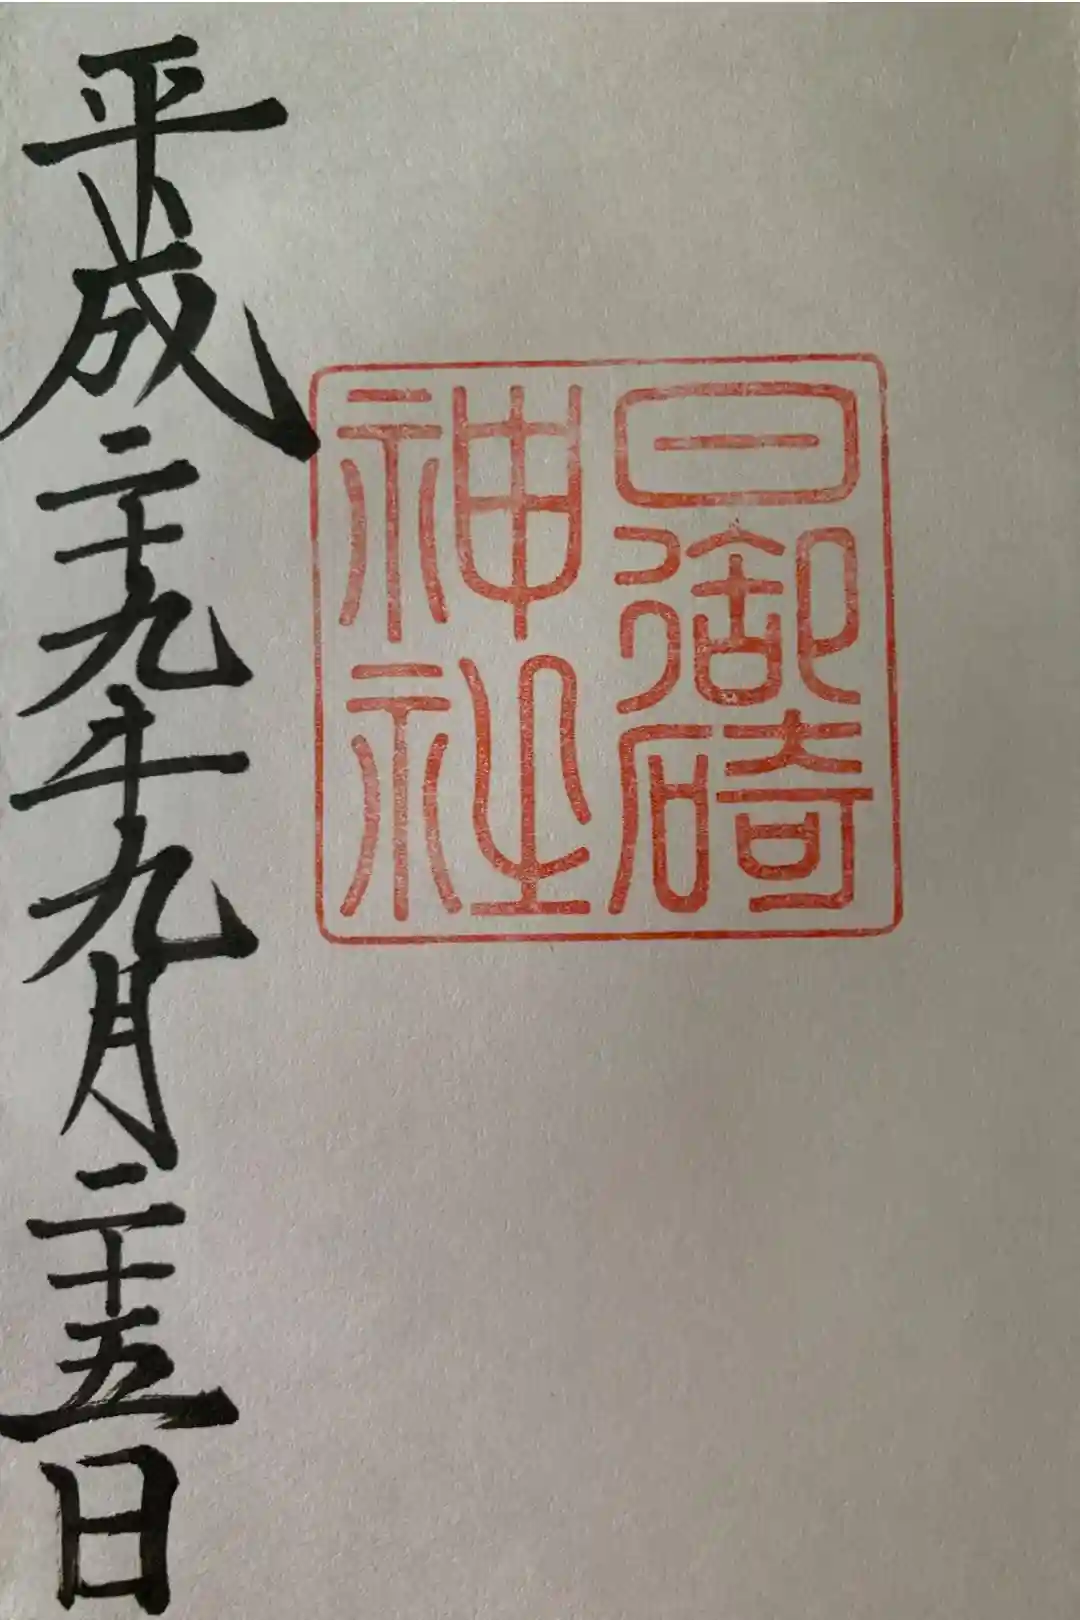 日御碕
神社
平成二十九年九月二十五日